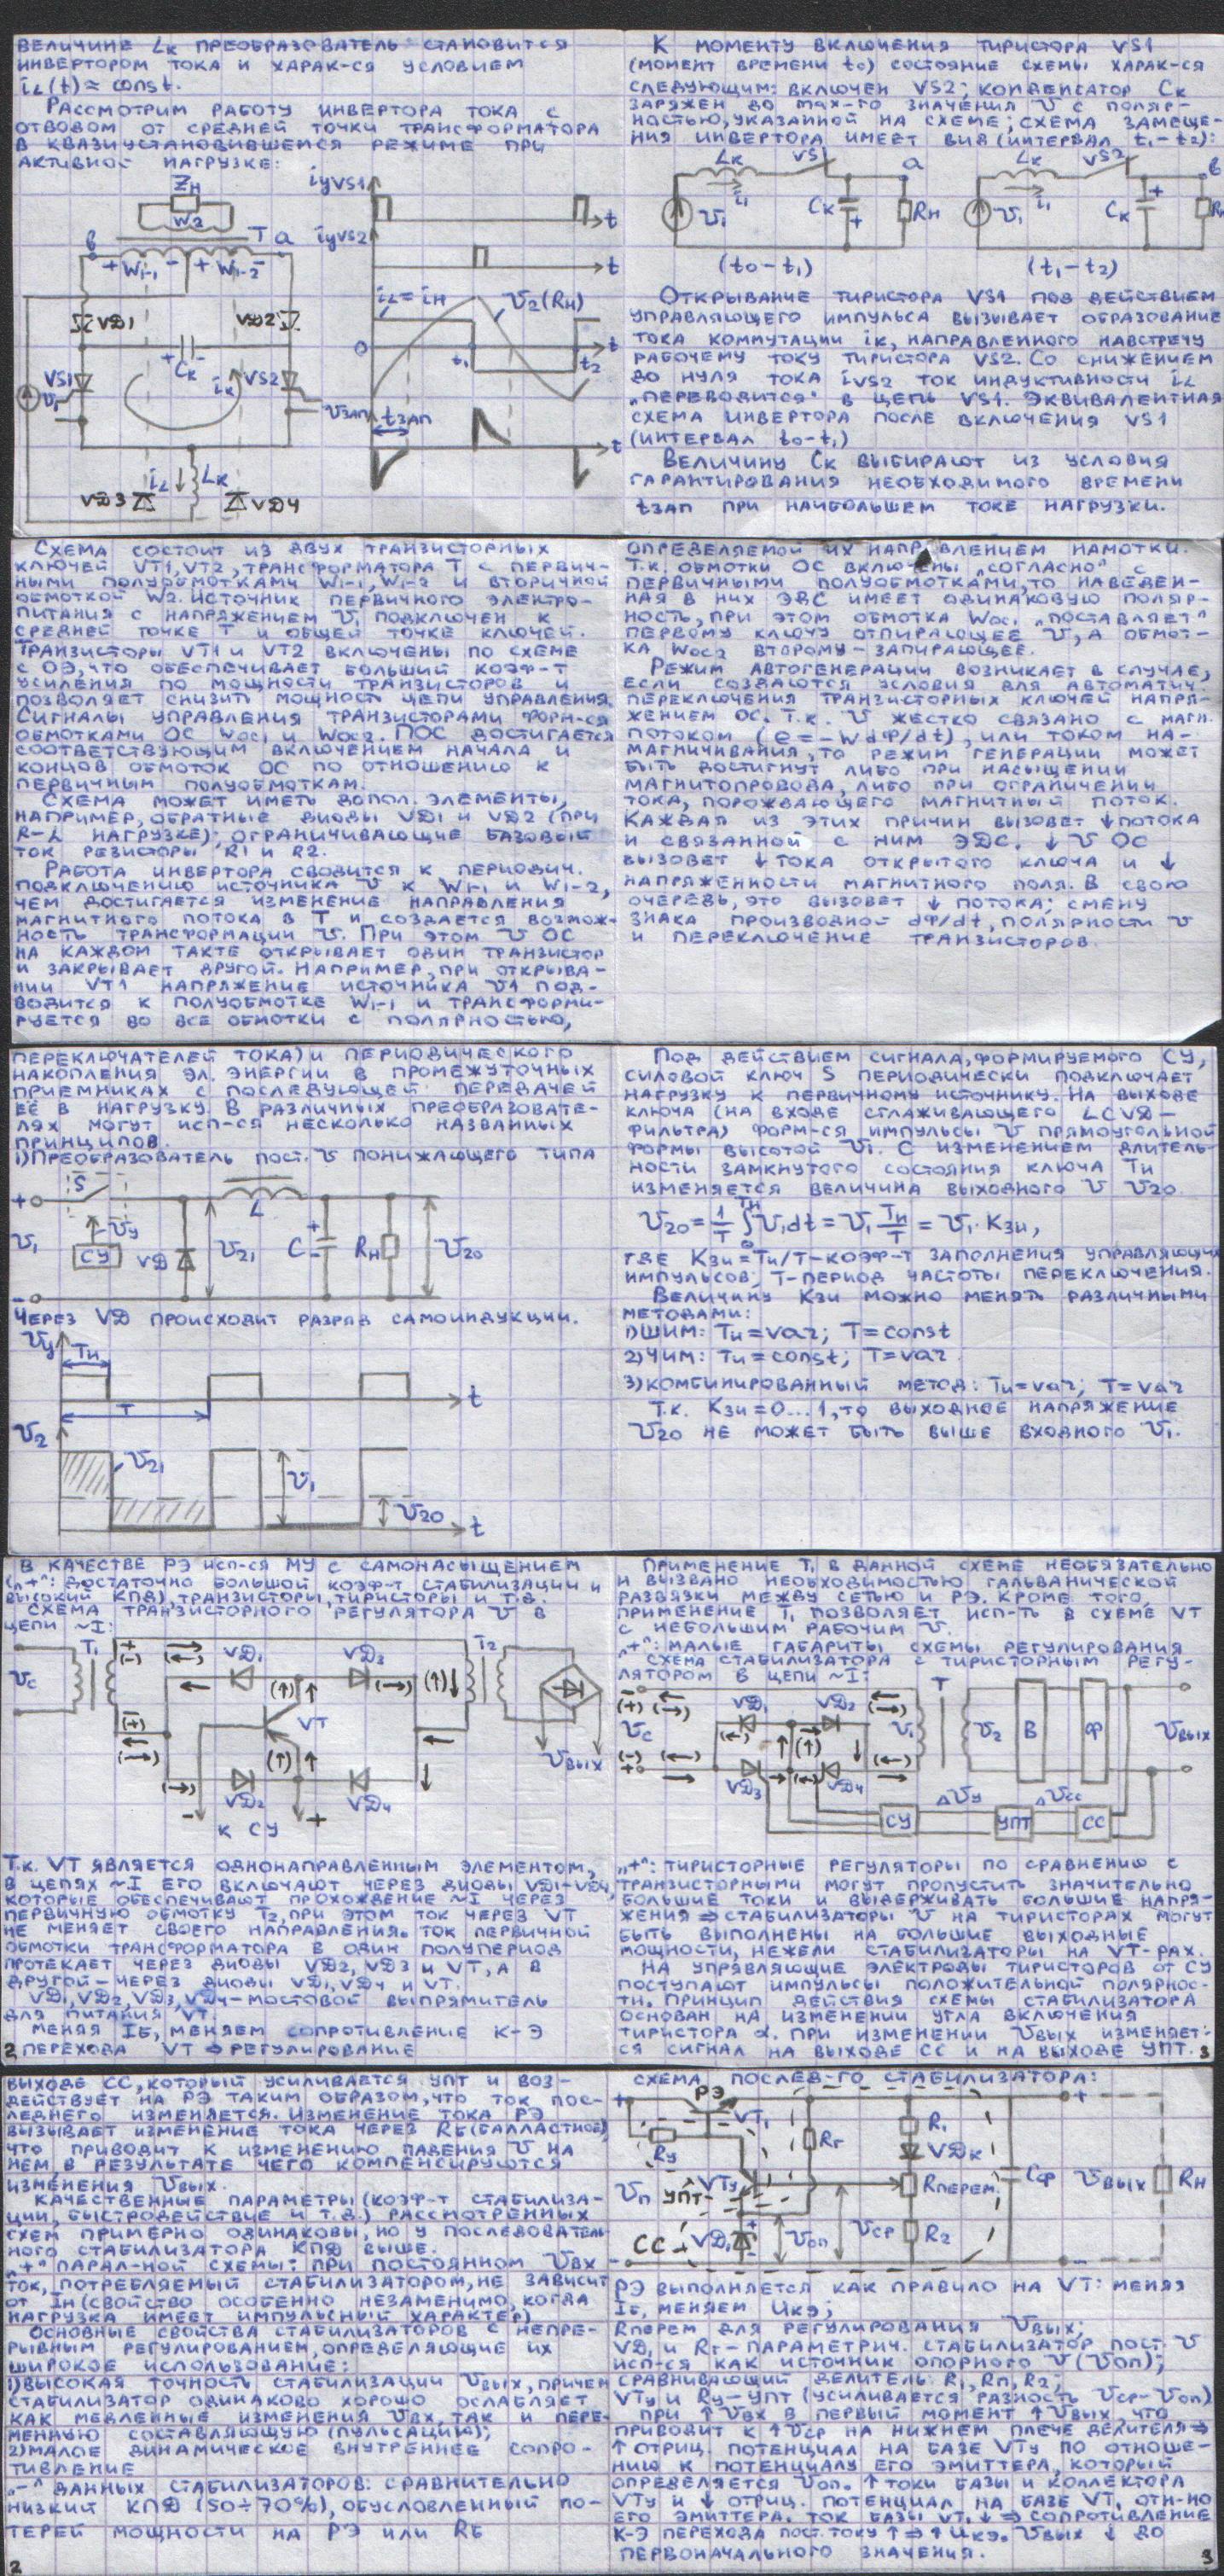 ВЕЛИЧИНЕ Lк ПРЕОБРАЗОВАТЕЛЬ СТАНОВИТСЯ
ИНВЕРТОРОМ ТОКА И ХАРАК-СЯ УСЛОВИЕМ
iL(t)≈const.
РАССМОТРИМ РАБОТУ ИНВЕРТОРА ТОКА С
ОТВОДОМ ОТ СРЕДНЕЙ ТОЧКИ ТРАНСФОРМАТОРА
В КВАЗИУСТАНОВИВШЕМСЯ РЕЖИМЕ ПРИ
АКТИВНОЙ НАГРУЗКЕ:
Zн
W2
в T a
+ W1-1 - + W1-2 -
VD1 VD2
+ - Cк
VS1 iк VS2
U1
iL Lк
VD3 VD4
iуVS1
t
iуVS2
t
iL=iн U2(Rн)
0 t1 t2 t
Uзап
tзап
t
К МОМЕНТУ ВКЛЮЧЕНИЯ ТИРИСТОРА VS1
(МОМЕНТ ВРЕМЕНИ t0) СОСТОЯНИЕ СХЕМЫ ХАРАК-СЯ
СЛЕДУЮЩИМ: ВКЛЮЧЕН VS2; КОНДЕНСАТОР Cк
ЗАРЯЖЕН ДО max-ГО ЗНАЧЕНИЯ U С ПОЛЯР-
НОСТЬЮ, УКАЗАННОЙ НА СХЕМЕ; СХЕМА ЗАМЕЩЕ-
НИЯ ИНВЕРТОРА ИМЕЕТ ВИД (ИНТЕРВАЛ t1-t2):
Lк VS1 a Lк VS2 в
U1 i1 Cк + Rн U1 i1 Cк + Rн
(t0-t1) (t1-t2)
ОТКРЫВАНИЕ ТИРИСТОРА VS1 ПОД ДЕЙСТВИЕМ
УПРАВЛЯЮЩЕГО ИМПУЛЬСА ВЫЗЫВАЕТ ОБРАЗОВАНИЕ
ТОКА КОММУТАЦИИ iк, НАПРАВЛЕННОГО НАВСТРЕЧУ
РАБОЧЕМУ ТОКУ ТИРИСТОРА VS2. СО СНИЖЕНИЕМ
ДО НУЛЯ ТОКА iVS2 ТОК ИНДУКТИВНОСТИ iL
„ПЕРЕВОДИТСЯ" В ЦЕПЬ VS1. ЭКВИВАЛЕНТНАЯ
СХЕМА ИНВЕРТОРА ПОСЛЕ ВКЛЮЧЕНИЯ VS1
(ИНТЕРВАЛ t0-t1)
ВЕЛИЧИНУ Cк ВЫБИРАЮТ ИЗ УСЛОВИЯ
ГАРАНТИРОВАНИЯ НЕОБХОДИМОГО ВРЕМЕНИ
tзап ПРИ НАИБОЛЬШЕМ ТОКЕ НАГРУЗКИ.
СХЕМА СОСТОИТ ИЗ ДВУХ ТРАНЗИСТОРНЫХ
КЛЮЧЕЙ VT1,VT2, ТРАНСФОРМАТОРА T С ПЕРВИЧ-
НЫМИ ПОЛУОБМОТКАМИ W1-1, W1-2 И ВТОРИЧНОЙ
ОБМОТКОЙ W2. ИСТОЧНИК ПЕРВИЧНОГО ЭЛЕКТРО-
ПИТАНИЯ С НАПРЯЖЕНИЕМ U1 ПОДКЛЮЧЕН К
СРЕДНЕЙ ТОЧКЕ T И ОБЩЕЙ ТОЧКЕ КЛЮЧЕЙ.
ТРАНЗИСТОРЫ VT1 И VT2 ВКЛЮЧЕНЫ ПО СХЕМЕ
С ОЭ, ЧТО ОБЕСПЕЧИВАЕТ БОЛЬШИЙ КОЭФ-Т
УСИЛЕНИЯ ПО МОЩНОСТИ ТРАНЗИСТОРОВ И
ПОЗВОЛЯЕТ СНИЗИТЬ МОЩНОСТЬ ЦЕПИ УПРАВЛЕНИЯ.
СИГНАЛЫ УПРАВЛЕНИЯ ТРАНЗИСТОРАМИ ФОРМ-СЯ
ОБМОТКАМИ ОС Wос1 И Wос2. ПОС ДОСТИГАЕТСЯ
СООТВЕТСТВУЮЩИМ ВКЛЮЧЕНИЕМ НАЧАЛА И
КОНЦОВ ОБМОТОК ОС ПО ОТНОШЕНИЮ К
ПЕРВИЧНЫМ ПОЛУОБМОТКАМ.
СХЕМА МОЖЕТ ИМЕТЬ ДОПОЛ. ЭЛЕМЕНТЫ,
НАПРИМЕР, ОБРАТНЫЕ ДИОДЫ VD1 И VD2 (ПРИ
R-L НАГРУЗКЕ); ОГРАНИЧИВАЮЩИЕ БАЗОВЫЙ
ТОК РЕЗИСТОРЫ R1 И R2.
РАБОТА ИНВЕРТОРА СВОДИТСЯ К ПЕРИОДИЧ.
ПОДКЛЮЧЕНИЮ ИСТОЧНИКА U К W1-1 И W1-2,
ЧЕМ ДОСТИГАЕТСЯ ИЗМЕНЕНИЕ НАПРАВЛЕНИЯ
МАГНИТНОГО ПОТОКА В T И СОЗДАЕТСЯ ВОЗМОЖ-
НОСТЬ ТРАНСФОРМАЦИИ U. ПРИ ЭТОМ U ОС
НА КАЖДОМ ТАКТЕ ОТКРЫВАЕТ ОДИН ТРАНЗИСТОР
И ЗАКРЫВАЕТ ДРУГОЙ. НАПРИМЕР, ПРИ ОТКРЫВА-
НИИ VT1 НАПРЯЖЕНИЕ ИСТОЧНИКА U1 ПОД-
ВОДИТСЯ К ПОЛУОБМОТКЕ W1-1 И ТРАНСФОРМИ-
РУЕТСЯ ВО ВСЕ ОБМОТКИ С ПОЛЯРНОСТЬЮ,
ОПРЕДЕЛЯЕМОЙ ИХ НАПРАВЛЕНИЕМ НАМОТКИ.
Т.К. ОБМОТКИ ОС ВКЛЮЧЕНЫ „СОГЛАСНО" С
ПЕРВИЧНЫМИ ПОЛУОБМОТКАМИ, ТО НАВЕДЕН-
НАЯ В НИХ ЭДС ИМЕЕТ ОДИНАКОВУЮ ПОЛЯР-
НОСТЬ, ПРИ ЭТОМ ОБМОТКА Wос1 „ПОСТАВЛЯЕТ"
ПЕРВОМУ КЛЮЧУ ОТПИРАЮЩЕЕ U, А ОБМОТ-
КА Wос2 ВТОРОМУ - ЗАПИРАЮЩЕЕ.
РЕЖИМ АВТОГЕНЕРАЦИИ ВОЗНИКАЕТ В СЛУЧАЕ,
ЕСЛИ СОЗДАЮТСЯ УСЛОВИЯ ДЛЯ АВТОМАТИЧ.
ПЕРЕКЛЮЧЕНИЯ ТРАНЗИСТОРНЫХ КЛЮЧЕЙ НАПРЯ-
ЖЕНИЕМ ОС. Т.К. U ЖЕСТКО СВЯЗАНО С МАГН.
ПОТОКОМ (e=-WdФ/dt), ИЛИ ТОКОМ НА-
МАГНИЧИВАНИЯ, ТО РЕЖИМ ГЕНЕРАЦИИ МОЖЕТ
БЫТЬ ДОСТИГНУТ ЛИБО ПРИ НАСЫЩЕНИИ
МАГНИТОПРОВОДА, ЛИБО ПРИ ОГРАНИЧЕНИИ
ТОКА, ПОРОЖДАЮЩЕГО МАГНИТНЫЙ ПОТОК.
КАЖДАЯ ИЗ ЭТИХ ПРИЧИН ВЫЗОВЕТ ↓ПОТОКА
И СВЯЗАННОЙ С НИМ ЭДС. ↓ U ОС
ВЫЗОВЕТ ↓ ТОКА ОТКРЫТОГО КЛЮЧА И ↓
НАПРЯЖЕННОСТИ МАГНИТНОГО ПОЛЯ. В СВОЮ
ОЧЕРЕДЬ, ЭТО ВЫЗОВЕТ ↓ ПОТОКА; СМЕНУ
ЗНАКА ПРОИЗВОДНОЙ dФ/dt, ПОЛЯРНОСТИ U
И ПЕРЕКЛЮЧЕНИЕ ТРАНЗИСТОРОВ.
ПЕРЕКЛЮЧАТЕЛЕЙ ТОКА) И ПЕРИОДИЧЕСКОГО
НАКОПЛЕНИЯ ЭЛ. ЭНЕРГИИ В ПРОМЕЖУТОЧНЫХ
ПРИЕМНИКАХ С ПОСЛЕДУЮЩЕЙ ПЕРЕДАЧЕЙ
ЕЁ В НАГРУЗКУ. В РАЗЛИЧНЫХ ПРЕОБРАЗОВАТЕ-
ЛЯХ МОГУТ ИСП-СЯ НЕСКОЛЬКО НАЗВАННЫХ
ПРИНЦИПОВ.
1)ПРЕОБРАЗОВАТЕЛЬ ПОСТ. U ПОНИЖАЮЩЕГО ТИПА
+ S L
U1 Uу СУ VD U21 C + - Rн U20
-
ЧЕРЕЗ VD ПРОИСХОДИТ РАЗРЯД САМОИНДУКЦИИ.
Uу
Tи
T t
U2
U21 U1 U20
t
ПОД ДЕЙСТВИЕМ СИГНАЛА, ФОРМИРУЕМОГО СУ,
СИЛОВОЙ КЛЮЧ S ПЕРИОДИЧЕСКИ ПОДКЛЮЧАЕТ
НАГРУЗКУ К ПЕРВИЧНОМУ ИСТОЧНИКУ. НА ВЫХОДЕ
КЛЮЧА (НА ВХОДЕ СГЛАЖИВАЮЩЕГО LCVD-
ФИЛЬТРА) ФОРМ-СЯ ИМПУЛЬСЫ U ПРЯМОУГОЛЬНОЙ
ФОРМЫ ВЫСОТОЙ U1. С ИЗМЕНЕНИЕМ ДЛИТЕЛЬ-
НОСТИ ЗАМКНУТОГО СОСТОЯНИЯ КЛЮЧА Tи
ИЗМЕНЯЕТСЯ ВЕЛИЧИНА ВЫХОДНОГО U U20
U20 = 1/T ∫0Tи U1dt = U1 Tи/T = U1·Kзи,
ГДЕ Kзи=Tи/T-КОЭФ-Т ЗАПОЛНЕНИЯ УПРАВЛЯЮЩИХ
ИМПУЛЬСОВ; T-ПЕРИОД ЧАСТОТЫ ПЕРЕКЛЮЧЕНИЯ.
ВЕЛИЧИНУ Kзи МОЖНО МЕНЯТЬ РАЗЛИЧНЫМИ
МЕТОДАМИ:
1)ШИМ: Tи=var; T=const
2)ЧИМ: Tи=const; T=var
3)КОМБИНИРОВАННЫЙ МЕТОД: Tи=var; T=var
Т.К. Kзи=0...1, ТО ВЫХОДНОЕ НАПРЯЖЕНИЕ
U20 НЕ МОЖЕТ БЫТЬ ВЫШЕ ВХОДНОГО U1.
В КАЧЕСТВЕ РЭ ИСП-СЯ МУ С САМОНАСЫЩЕНИЕМ
(„+": ДОСТАТОЧНО БОЛЬШОЙ КОЭФ-Т СТАБИЛИЗАЦИИ И
ВЫСОКИЙ КПД), ТРАНЗИСТОРЫ, ТИРИСТОРЫ И Т.Д.
СХЕМА ТРАНЗИСТОРНОГО РЕГУЛЯТОРА U В
ЦЕПИ ~I:
T1 VD1 VD3 T2
Uс
VT
Uвых
VD2 VD4
- К СУ +
Т.К. VT ЯВЛЯЕТСЯ ОДНОНАПРАВЛЕННЫМ ЭЛЕМЕНТОМ,
В ЦЕПЯХ ~I ЕГО ВКЛЮЧАЮТ ЧЕРЕЗ ДИОДЫ VD1-VD4,
КОТОРЫЕ ОБЕСПЕЧИВАЮТ ПРОХОЖДЕНИЕ ~I ЧЕРЕЗ
ПЕРВИЧНУЮ ОБМОТКУ T2, ПРИ ЭТОМ ТОК ЧЕРЕЗ VT
НЕ МЕНЯЕТ СВОЕГО НАПРАВЛЕНИЯ. ТОК ПЕРВИЧНОЙ
ОБМОТКИ ТРАНСФОРМАТОРА В ОДИН ПОЛУПЕРИОД
ПРОТЕКАЕТ ЧЕРЕЗ ДИОДЫ VD2, VD3 И VT, А В
ДРУГОЙ - ЧЕРЕЗ ДИОДЫ VD1, VD4 И VT.
VD1, VD2, VD3, VD4 - МОСТОВОЙ ВЫПРЯМИТЕЛЬ
ДЛЯ ПИТАНИЯ VT.
МЕНЯЯ Iб, МЕНЯЕМ СОПРОТИВЛЕНИЕ К-Э
ПЕРЕХОДА VT ⇒ РЕГУЛИРОВАНИЕ
2
ПРИМЕНЕНИЕ T1 В ДАННОЙ СХЕМЕ НЕОБЯЗАТЕЛЬНО
И ВЫЗВАНО НЕОБХОДИМОСТЬЮ ГАЛЬВАНИЧЕСКОЙ
РАЗВЯЗКИ МЕЖДУ СЕТЬЮ И РЭ. КРОМЕ ТОГО,
ПРИМЕНЕНИЕ T1 ПОЗВОЛЯЕТ ИСП-ТЬ В СХЕМЕ VT
С НЕБОЛЬШИМ РАБОЧИМ U.
„+": МАЛЫЕ ГАБАРИТЫ СХЕМЫ РЕГУЛИРОВАНИЯ
СХЕМА СТАБИЛИЗАТОРА С ТИРИСТОРНЫМ РЕГУ-
ЛЯТОРОМ В ЦЕПИ ~I:
VD1 VD2 T
Uс U1 U2 В Ф Uвых
VD3 VD4
ΔUу ΔUсс
СУ УПТ СС
„+": ТИРИСТОРНЫЕ РЕГУЛЯТОРЫ ПО СРАВНЕНИЮ С
ТРАНЗИСТОРНЫМИ МОГУТ ПРОПУСТИТЬ ЗНАЧИТЕЛЬНО
БОЛЬШИЕ ТОКИ И ВЫДЕРЖИВАТЬ БОЛЬШИЕ НАПРЯ-
ЖЕНИЯ ⇒ СТАБИЛИЗАТОРЫ U НА ТИРИСТОРАХ МОГУТ
БЫТЬ ВЫПОЛНЕНЫ НА БОЛЬШИЕ ВЫХОДНЫЕ
МОЩНОСТИ, НЕЖЕЛИ СТАБИЛИЗАТОРЫ НА VT-РАХ.
НА УПРАВЛЯЮЩИЕ ЭЛЕКТРОДЫ ТИРИСТОРОВ ОТ СУ
ПОСТУПАЮТ ИМПУЛЬСЫ ПОЛОЖИТЕЛЬНОЙ ПОЛЯРНОС-
ТИ. ПРИНЦИП ДЕЙСТВИЯ СХЕМЫ СТАБИЛИЗАТОРА
ОСНОВАН НА ИЗМЕНЕНИИ УГЛА ВКЛЮЧЕНИЯ
ТИРИСТОРА α. ПРИ ИЗМЕНЕНИИ Uвых ИЗМЕНЯЕТ-
СЯ СИГНАЛ НА ВЫХОДЕ СС И НА ВЫХОДЕ УПТ.
3
ВЫХОДЕ СС, КОТОРЫЙ УСИЛИВАЕТСЯ УПТ И ВОЗ-
ДЕЙСТВУЕТ НА РЭ ТАКИМ ОБРАЗОМ, ЧТО ТОК ПОС-
ЛЕДНЕГО ИЗМЕНЯЕТСЯ. ИЗМЕНЕНИЕ ТОКА РЭ
ВЫЗЫВАЕТ ИЗМЕНЕНИЕ ТОКА ЧЕРЕЗ Rб (БАЛЛАСТНОЕ),
ЧТО ПРИВОДИТ К ИЗМЕНЕНИЮ ПАДЕНИЯ U НА
НЕМ, В РЕЗУЛЬТАТЕ ЧЕГО КОМПЕНСИРУЮТСЯ
ИЗМЕНЕНИЯ Uвых.
КАЧЕСТВЕННЫЕ ПАРАМЕТРЫ (КОЭФ-Т СТАБИЛИЗА-
ЦИИ, БЫСТРОДЕЙСТВИЕ И Т.Д.) РАССМОТРЕННЫХ
СХЕМ ПРИМЕРНО ОДИНАКОВЫ, НО У ПОСЛЕДОВАТЕЛЬ-
НОГО СТАБИЛИЗАТОРА КПД ВЫШЕ.
„+" ПАРАЛ-НОЙ СХЕМЫ: ПРИ ПОСТОЯННОМ Uвх
ТОК, ПОТРЕБЛЯЕМЫЙ СТАБИЛИЗАТОРОМ, НЕ ЗАВИСИТ
ОТ Iн (СВОЙСТВО ОСОБЕННО НЕЗАМЕНИМО, КОГДА
НАГРУЗКА ИМЕЕТ ИМПУЛЬСНЫЙ ХАРАКТЕР)
ОСНОВНЫЕ СВОЙСТВА СТАБИЛИЗАТОРОВ С НЕПРЕ-
РЫВНЫМ РЕГУЛИРОВАНИЕМ, ОПРЕДЕЛЯЮЩИЕ ИХ
ШИРОКОЕ ИСПОЛЬЗОВАНИЕ:
1)ВЫСОКАЯ ТОЧНОСТЬ СТАБИЛИЗАЦИИ Uвых, ПРИЧЕМ
СТАБИЛИЗАТОР ОДИНАКОВО ХОРОШО ОСЛАБЛЯЕТ
КАК МЕДЛЕННЫЕ ИЗМЕНЕНИЯ Uвх, ТАК И ПЕРЕ-
МЕННУЮ СОСТАВЛЯЮЩУЮ (ПУЛЬСАЦИЮ);
2)МАЛОЕ ДИНАМИЧЕСКОЕ ВНУТРЕННЕЕ СОПРО-
ТИВЛЕНИЕ
„-" ДАННЫХ СТАБИЛИЗАТОРОВ: СРАВНИТЕЛЬНО
НИЗКИЙ КПД (50÷70%), ОБУСЛОВЛЕННЫЙ ПО-
ТЕРЕЙ МОЩНОСТИ НА РЭ ИЛИ Rб
2
СХЕМА ПОСЛЕД-ГО СТАБИЛИЗАТОРА:
+ РЭ +
VT1 R1
Rу Rг VDк
VTу Rперем Cф Uвых Rн
Uп УПТ
СС VD1 Uоп Uср R2
- -
РЭ ВЫПОЛНЯЕТСЯ КАК ПРАВИЛО НА VT: МЕНЯЯ
Iб, МЕНЯЕМ Uкэ;
Rперем ДЛЯ РЕГУЛИРОВАНИЯ Uвых;
VD1 И Rг-ПАРАМЕТРИЧ. СТАБИЛИЗАТОР ПОСТ. U
ИСП-СЯ КАК ИСТОЧНИК ОПОРНОГО U (Uоп);
СРАВНИВАЮЩИЙ ДЕЛИТЕЛЬ: R1, Rп, R2;
VTу И Rу-УПТ (УСИЛИВАЕТСЯ РАЗНОСТЬ Uср-Uоп)
ПРИ ↑Uвх В ПЕРВЫЙ МОМЕНТ ↑Uвых, ЧТО
ПРИВОДИТ К ↑Uср НА НИЖНЕМ ПЛЕЧЕ ДЕЛИТЕЛЯ⇒
↑ ОТРИЦ. ПОТЕНЦИАЛ НА БАЗЕ VTу ПО ОТНОШЕ-
НИЮ К ПОТЕНЦИАЛУ ЕГО ЭМИТТЕРА, КОТОРЫЙ
ОПРЕДЕЛЯЕТСЯ Uоп. ↑ ТОКИ БАЗЫ И КОЛЛЕКТОРА
VTу И ↓ ОТРИЦ. ПОТЕНЦИАЛ НА БАЗЕ VT1 ОТН-НО
ЕГО ЭМИТТЕРА. ТОК БАЗЫ VT1 ↓ ⇒ СОПРОТИВЛЕНИЕ
К-Э ПЕРЕХОДА ПОСТ. ТОКУ ↑ ⇒ ↑ Uкэ. Uвых ↓ ДО
ПЕРВОНАЧАЛЬНОГО ЗНАЧЕНИЯ.
3